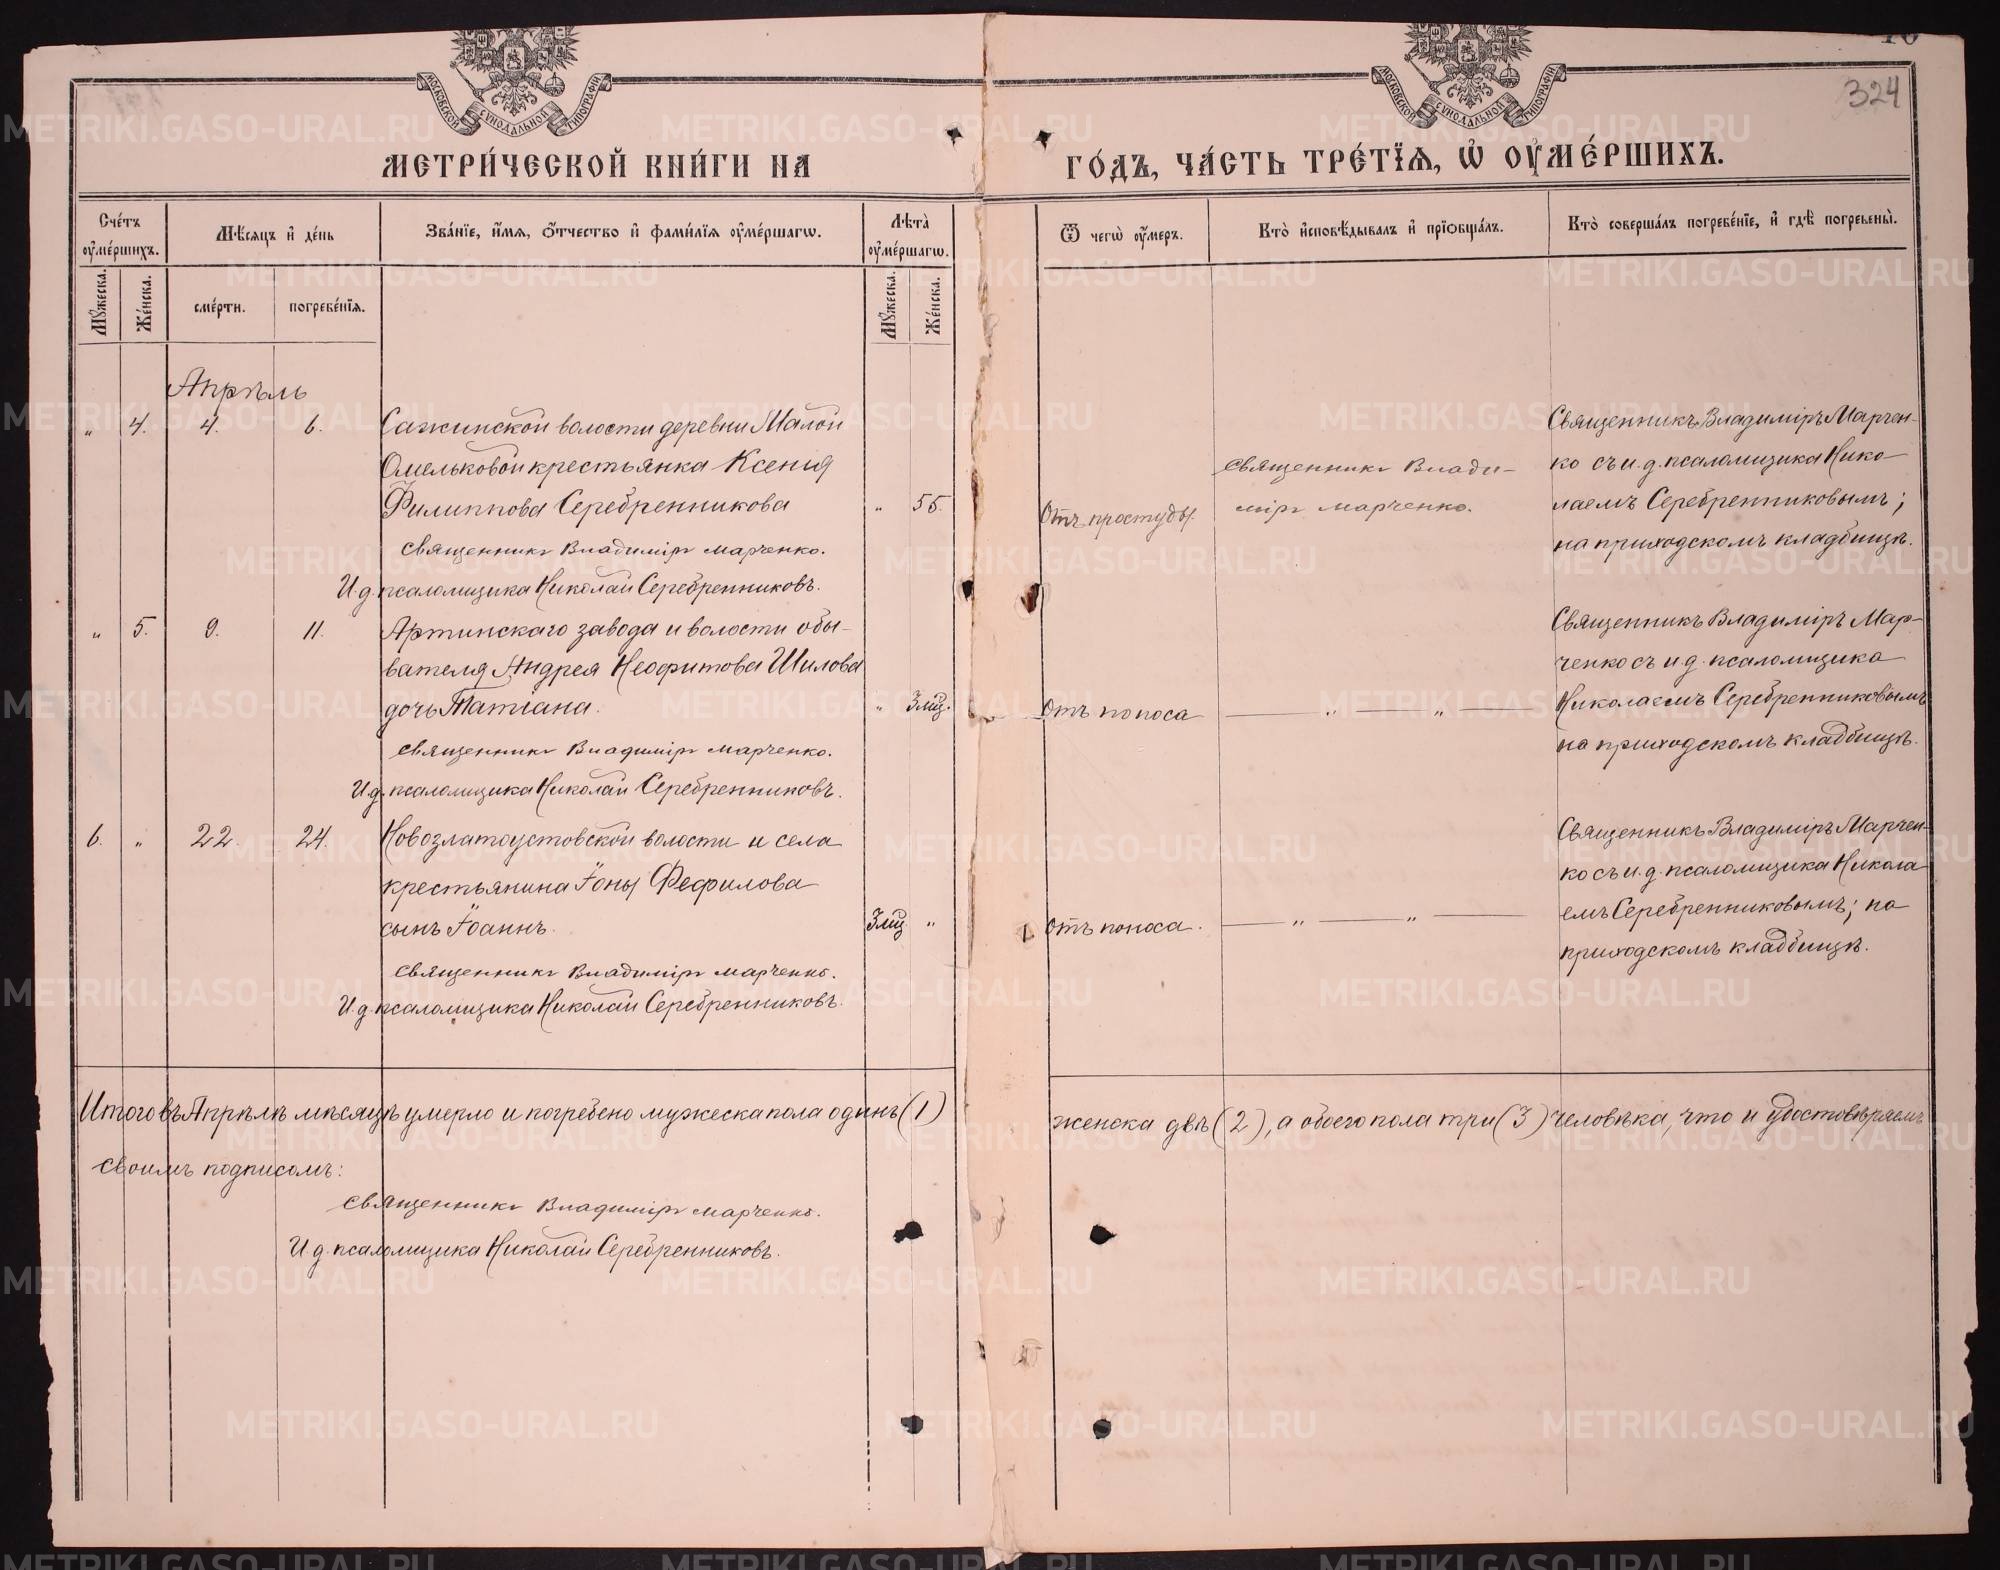 МОСКОВСКОЙ СѴНОДАЛЬНОЙ ТИПОГРАФІИ
МОСКОВСКОЙ СѴНОДАЛЬНОЙ ТИПОГРАФІИ
324
МЕТРИ́ЧЕСКОЙ КНИ́ГИ НА
ГО́ДЪ, ЧА́СТЬ ТРЕ́ТЇѦ, Ѡ҆ ОУ҆МЕ́РШИХЪ.
Сче́тъ оу҆ме́ршихъ.
Мѣ́сѧцъ и҆ де́нь
Зва́нїе, и҆́мѧ, ѻ҆́тчество и҆ фами́лїѧ оу҆ме́ршагѡ.
Лѣта̀ оу҆ме́ршагѡ.
Ѿ чегѡ̀ оу҆́меръ.
Кто̀ и҆сповѣ́дывалъ и҆ прїѻбща́лъ.
Кто̀ соверша́лъ погребе́нїе, и҆ гдѣ̀ погребены̀.
Мꙋ́жеска.
Же́нска.
сме́рти.
погребе́нїѧ.
Мꙋ́жеска.
Же́нска.
Апрѣль
„ 4. 4. 6. Сажинской волости деревни Малой
Омельковой крестьянка Ксенія
Филиппова Серебренникова „ 55.
Священникъ Владиміръ Марченко.
И.д. псаломщика Николай Серебренниковъ.
Отъ простуды.
Священникъ Влади-
міръ Марченко.
Священникъ Владиміръ Марчен-
ко съ и.д. псаломщика Нико-
лаемъ Серебренниковымъ;
на приходскомъ кладбищѣ.
„ 5. 9. 11. Артинскаго завода и волости обы-
вателя Андрея Неофитова Шилова
дочь Татіана. „ 3 мц.
Священникъ Владиміръ Марченко.
И.д. псаломщика Николай Серебренниковъ.
Отъ поноса
„ „
Священникъ Владиміръ Мар-
ченко съ и.д. псаломщика
Николаемъ Серебренниковымъ
на приходскомъ кладбищѣ.
6. „ 22. 24. Новозлатоустовской волости и села
крестьянина Іоны Фефилова
сынъ Іоаннъ. 3 мц „
Священникъ Владиміръ Марченко.
И.д. псаломщика Николай Серебренниковъ.
Отъ поноса.
„ „
Священникъ Владиміръ Марчен-
ко съ и.д. псаломщика Никола-
емъ Серебренниковымъ; на
приходскомъ кладбищѣ.
Итого въ Апрѣлѣ мѣсяцѣ умерло и погребено мужеска пола одинъ (1)
женска двѣ (2), а обоего пола три (3) человѣка, что и удостовѣряемъ
своимъ подписомъ:
Священникъ Владиміръ Марченко.
И д. псаломщика Николай Серебренниковъ.
METRIKI.GASO-URAL.RU